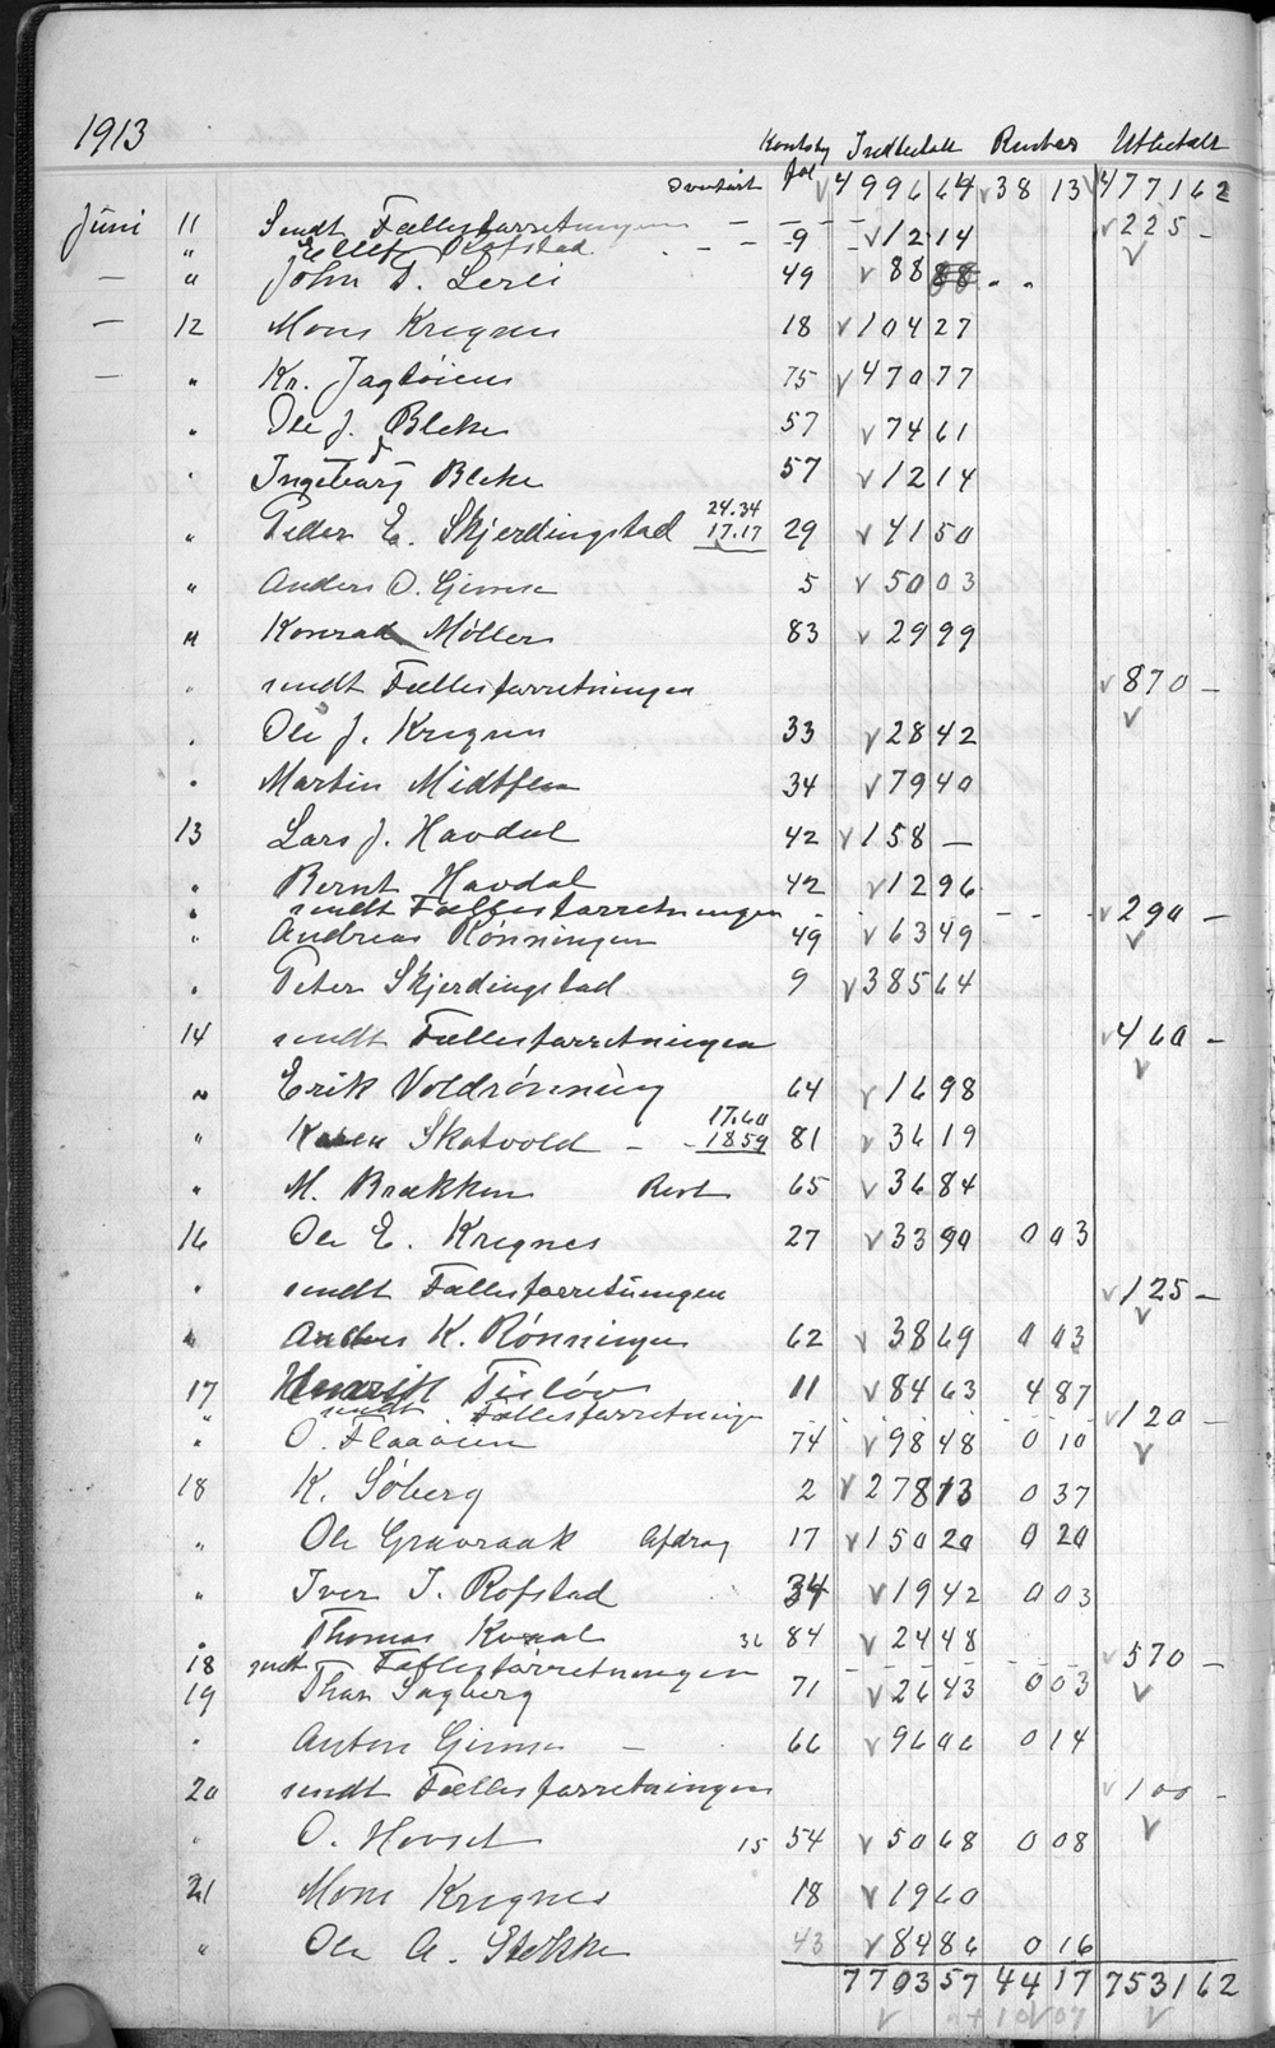 1913
Kontobog Indbetalt Renter Utbetalt
Overført fol 4996 64 38 13 4771 62
Juni 11 Sendt Fællesforretningen - - - - 225 -
" Ellef Rofstad - - 9 12 14
- " John T. Lerli 49 88 88 " "
- 12 Mons Kregnes 18 104 27
- " Kr. Jagtøien 75 470 77
" Ole J. Bleke 57 74 61
" Ingeborg Bleke 57 12 14
24.34
" Peder E. Skjerdingstad 17.17 29 41 50
" Anders O. Gimse 5 50 03
" Konrad Møller 83 29 99
" sendt Fællesforretningen 870 -
" Ole J. Kregnes 33 28 42
" Martin Midtflaa 34 79 40
13 Lars J. Havdal 42 158 -
" Bernt Havdal 42 12 96
" sendt Fællesforretningen - - - - 290 -
" Andreas Rønningen 49 63 49
" Peter Skjerdingstad 9 385 64
14 sendt Fællesforretningen 460 -
" Erik Voldrønning 64 16 98
17.60
" Karen Skatvold - - 18 59 81 36 19
" M. Brækken Rest 65 36 84
16 Ole E. Kregnes 27 33 90 0 03
" sendt Fællesforretningen 125 -
" Anders K. Rønningen 62 38 69 0 03
17 Henrik Tisløv 11 84 63 4 87
" sendt Fællesforretningen 120 -
" O. Flaaøien 74 98 48 0 10
18 K. Søberg 2 278 13 0 37
" Ole Gravraak Afdrag 17 150 20 0 20
" Iver I. Rofstad 34 19 42 0 03
" Thomas Kvaal 36 84 24 48
18 sendt Fællesforretningen - - - 570 -
19 Thor Sagberg 71 26 43 0 03
" Anton Gimse - 66 96 06 0 14
20 sendt Fællesforretningen 100 -
" O. Hovset 15 54 50 68 0 08
21 Mons Kregnes 18 19 60
" Ole A. Stokke 43 84 86 0 16
7703 57 44 17 7531 62